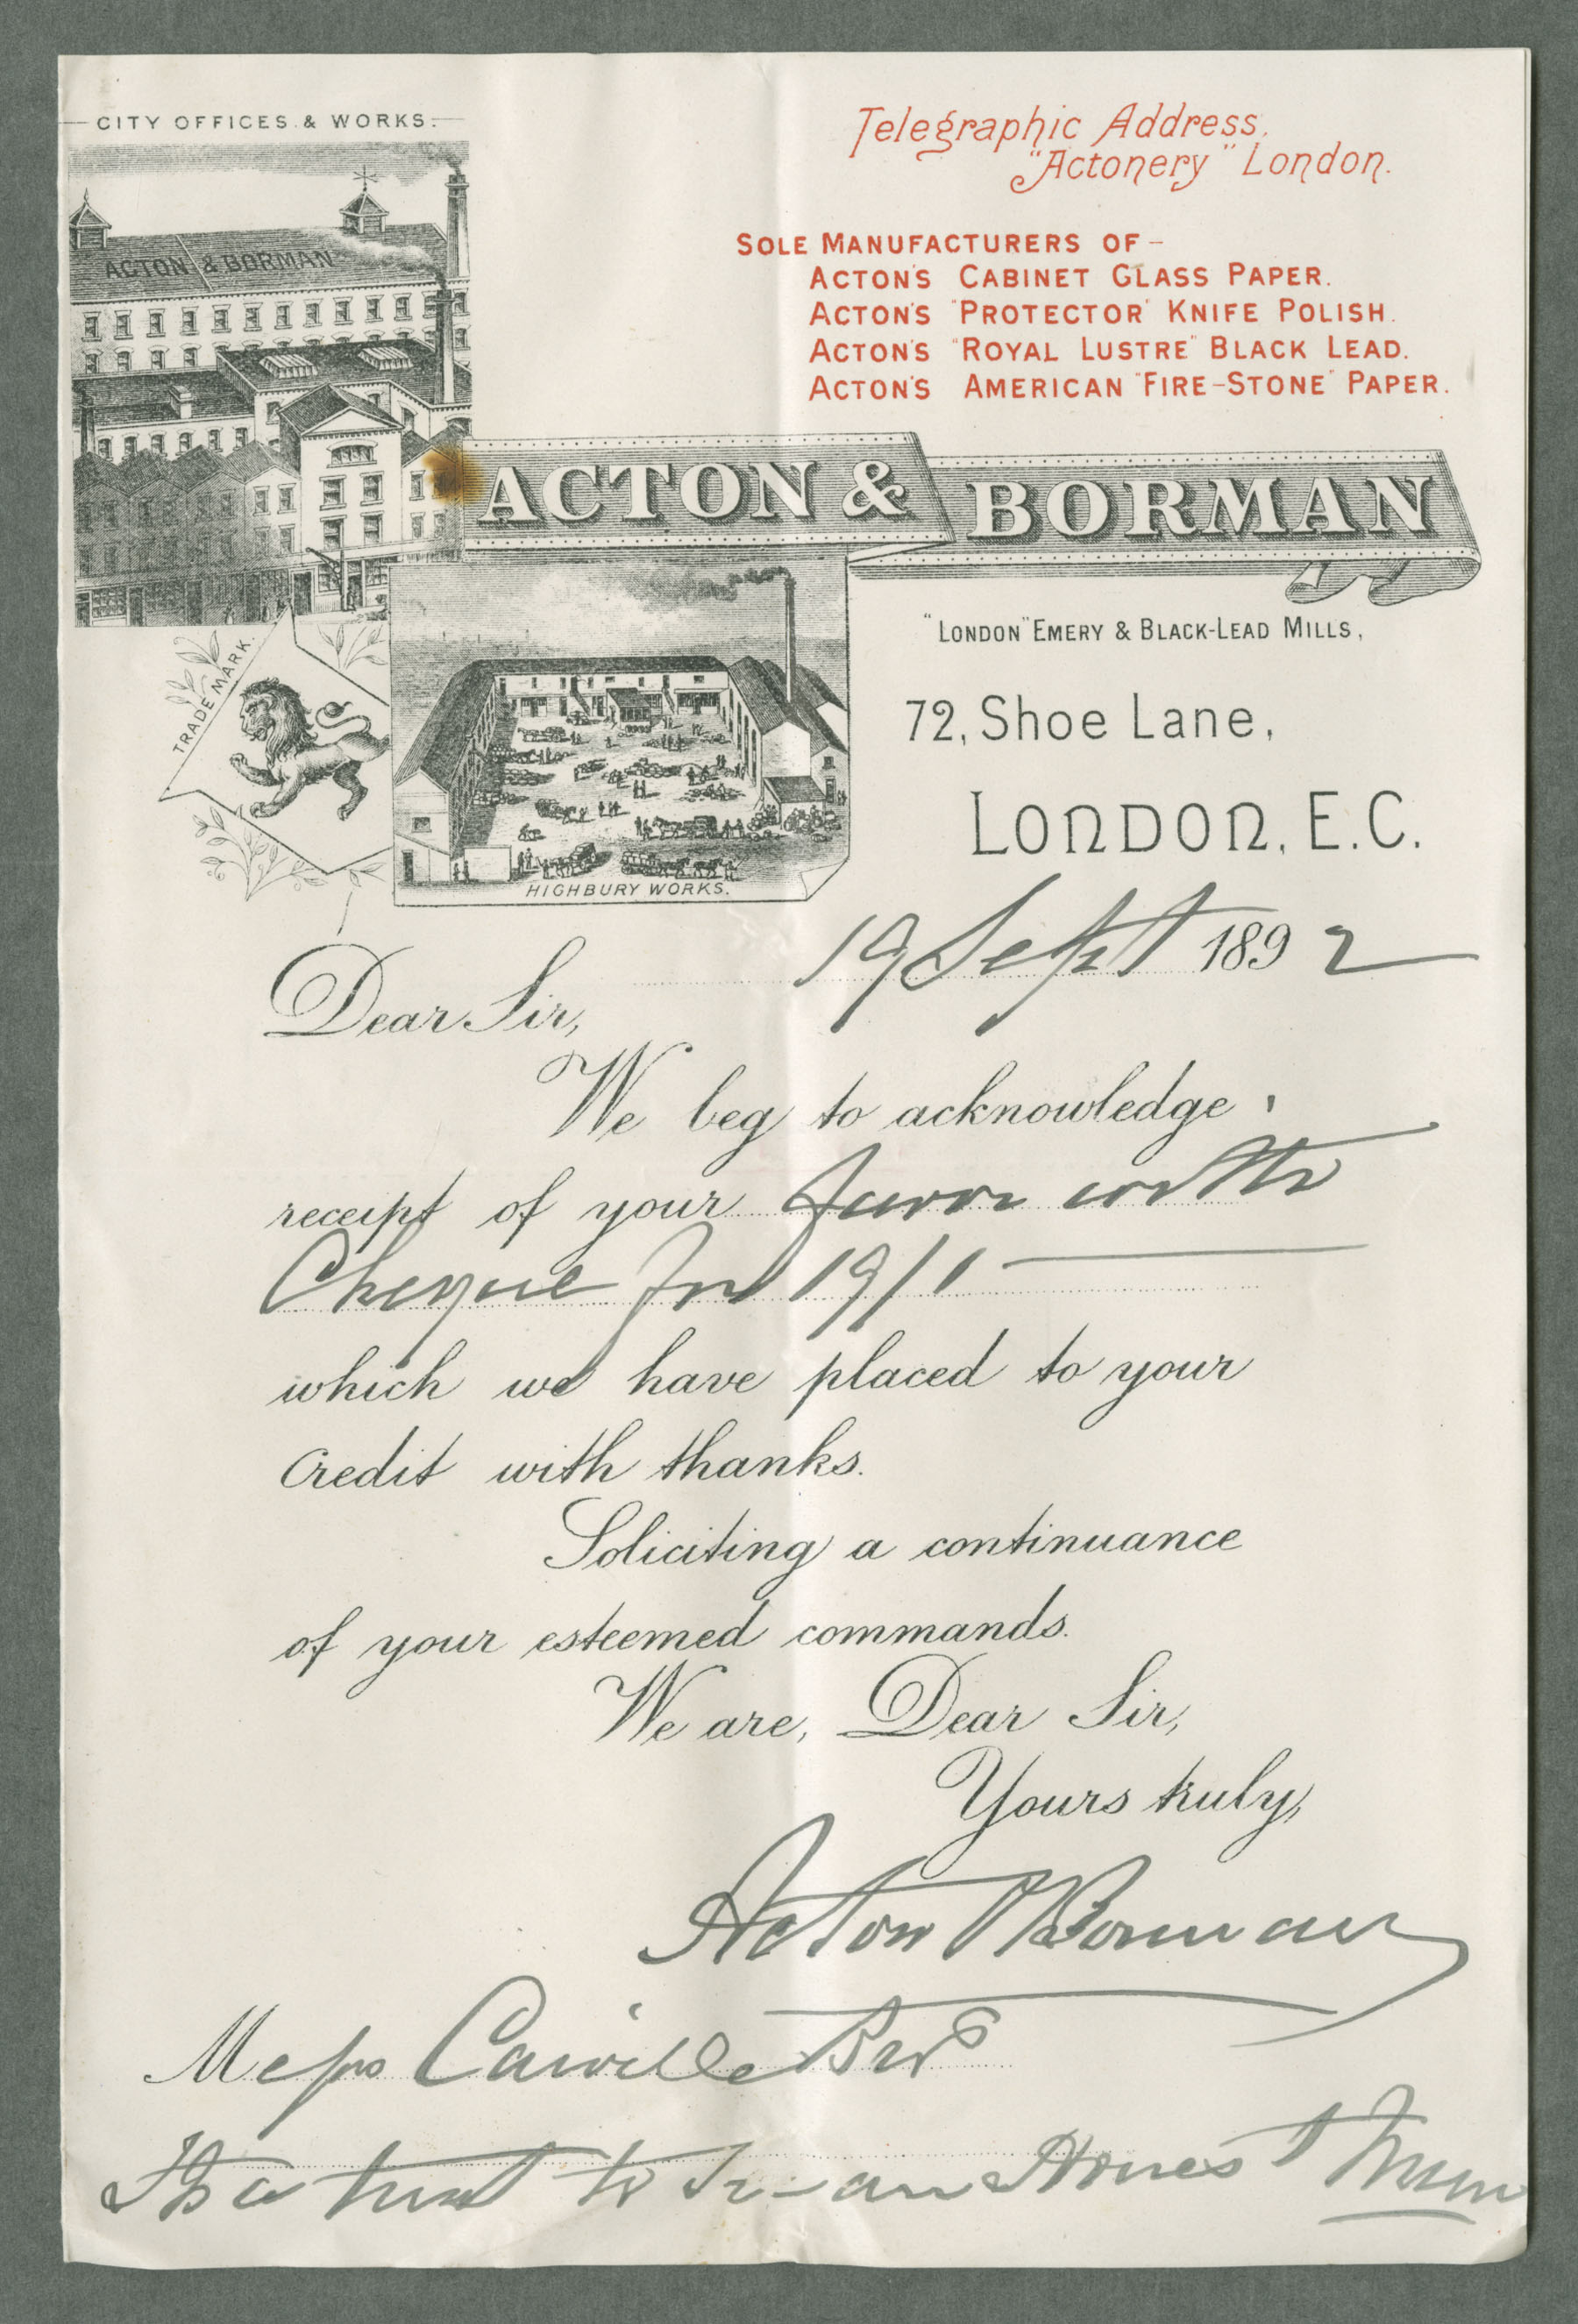 CITY OFFICES & WORKS.
ACTON & BORMAN
Telegraphic Address,
"Actonery" London.
SOLE MANUFACTURERS OF –
ACTON'S CABINET GLASS PAPER.
ACTON'S "PROTECTOR" KNIFE POLISH.
ACTON'S "ROYAL LUSTRE" BLACK LEAD.
ACTON'S AMERICAN "FIRE-STONE" PAPER.
ACTON & BORMAN
"LONDON" EMERY & BLACK-LEAD MILLS,
TRADE MARK.
72, Shoe Lane,
LONDON, E.C.
HIGHBURY WORKS.
19 Sept 1892
Dear Sir,
We beg to acknowledge
receipt of your favor with
Cheque for 19/1
which we have placed to your
Credit with thanks.
Soliciting a continuance
of your esteemed commands.
We are, Dear Sir,
Yours truly,
Acton & Borman
Messrs Bros
a treat to an Honest Man